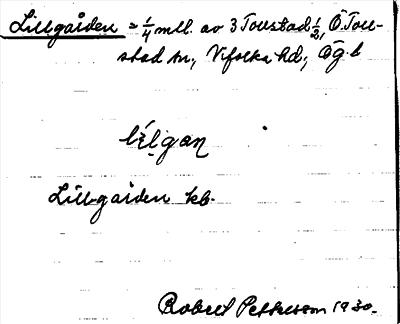 Lillgården = 1/4 mtl. av 3 Tollstad 1/2, Ö. Toll-
stad sn., Vifolka hd., Ög. l.
lilgan
Lillgården kb.
Robert Pettersson 1930.